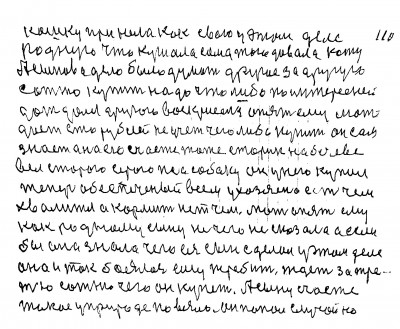 кошку приняла как свою у этом деле 110
родную что кушала сама того довала коту
Лёшкова дело было думат другое за другую
сотню купит надо что либо поинтересней
дождался другого воскресеня опят ему мат
дает сто рублей не учет чего либо купит он сам
знает на его счасте тоже старик на базаре
вел старого серого пса собаку он у него купил
теперь обеспеченый всем у хозяено ест чем
хвалится а кормит нет чем, мат опят ему
как родному сыну ни чего не сказала а если
бы она знала чего ея сын сделал у этом деле
она и так боялася ему требит, ждет за тре-
тюю сотню чего он купит. Лешку счасте
такое у природе повезло. Он попал случайно